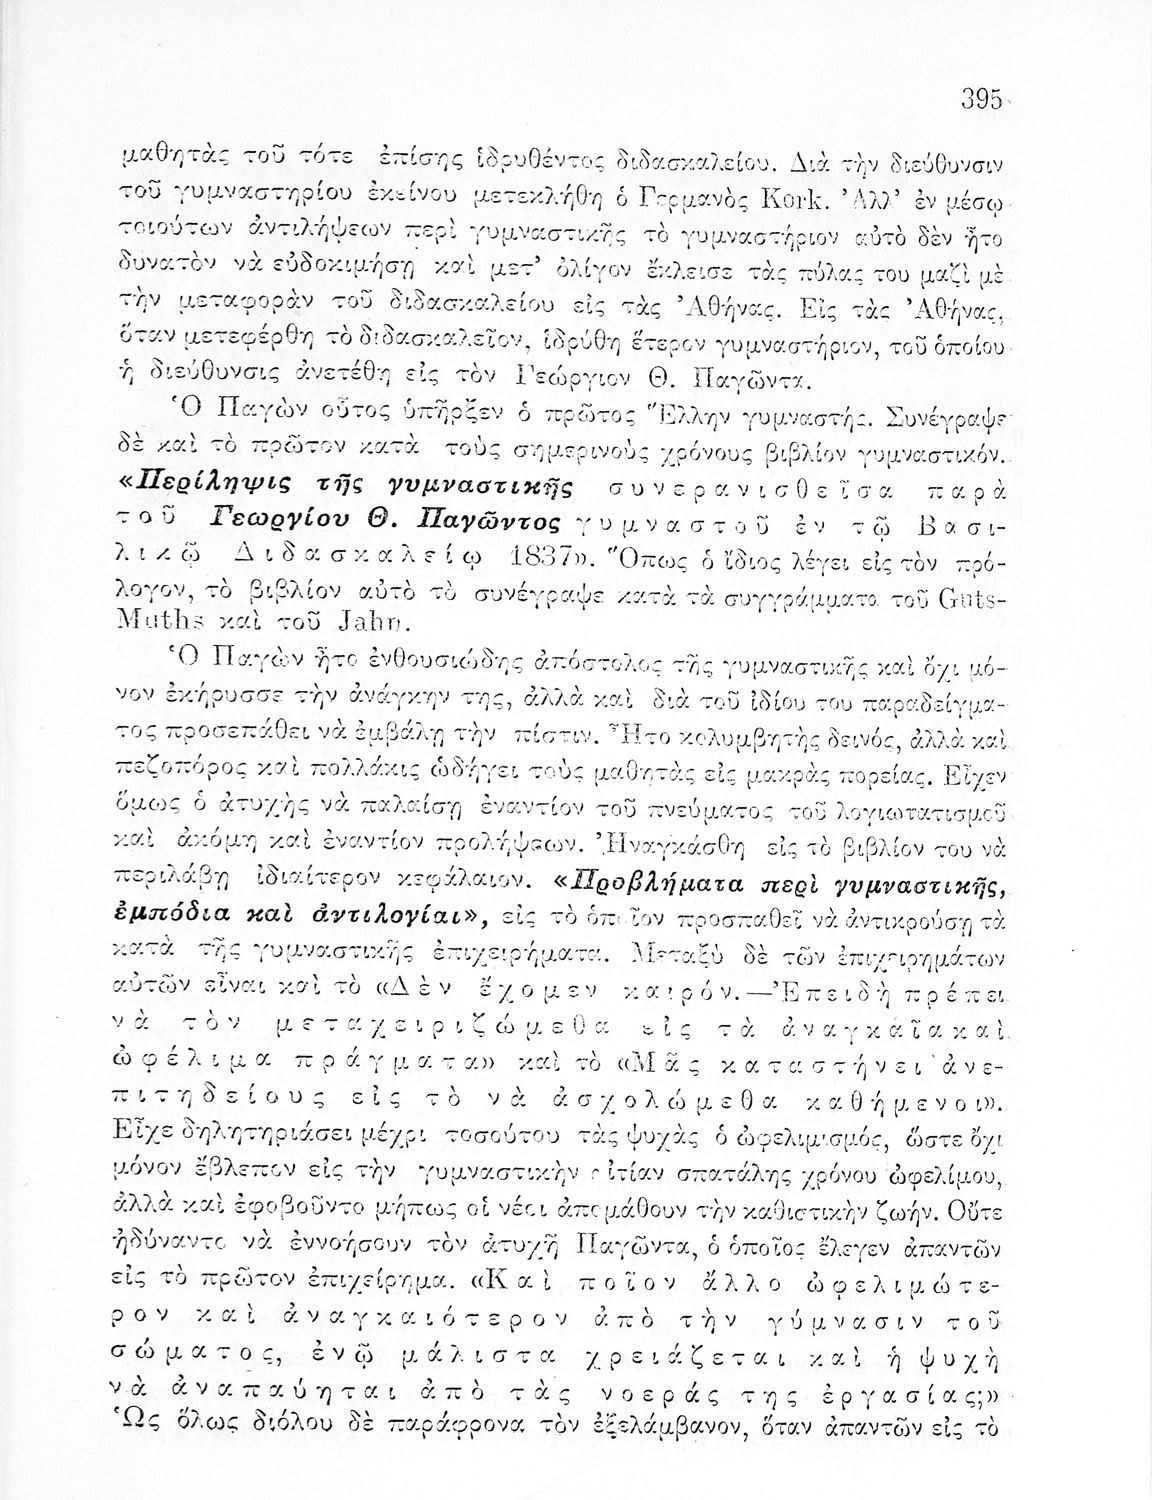 395
μαθητὰς τοῦ τότε ἐπίσης ἱδρυθέντος διδασκαλείου. Διὰ τὴν διεύθυνσιν
τοῦ γυμναστηρίου ἐκείνου μετεκλήθη ὁ Γερμανὸς Kork. Ἀλλ’ ἐν μέσῳ
τοιούτων ἀντιλήψεων περὶ γυμναστικῆς τὸ γυμναστήριον αὐτὸ δὲν ἦτο
δυνατὸν νὰ εὐδοκιμήσῃ καὶ μετ’ ὀλίγον ἔκλεισε τὰς πύλας του μαζὶ μὲ
τὴν μεταφορὰν τοῦ διδασκαλείου εἰς τὰς Ἀθήνας. Εἰς τὰς Ἀθήνας,
ὅταν μετεφέρθη τὸ διδασκαλεῖον, ἱδρύθη ἕτερον γυμναστήριον, τοῦ ὁποίου
ἡ διεύθυνσις ἀνετέθη εἰς τὸν Γεώργιον Θ. Παγῶντα.
Ὁ Παγὼν οὗτος ὑπῆρξεν ὁ πρῶτος Ἕλλην γυμναστής. Συνέγραψε
δὲ καὶ τὸ πρῶτον κατὰ τοὺς σημερινοὺς χρόνους βιβλίον γυμναστικόν.
«Περίληψις τῆς γυμναστικῆς συνερανισθεῖσα παρὰ
τοῦ Γεωργίου Θ. Παγῶντος γυμναστοῦ ἐν τῷ Βασι-
λικῷ Διδασκαλείῳ 1837». Ὅπως ὁ ἴδιος λέγει εἰς τὸν πρό-
λογον, τὸ βιβλίον αὐτὸ τὸ συνέγραψε κατὰ τὰ συγγράμματα τοῦ Guts-
Muths καὶ τοῦ Jahn.
Ὁ Παγὼν ἦτο ἐνθουσιώδης ἀπόστολος τῆς γυμναστικῆς καὶ ὄχι μό-
νον ἐκήρυσσε τὴν ἀνάγκην της, ἀλλὰ καὶ διὰ τοῦ ἰδίου του παραδείγμα-
τος προσεπάθει νὰ ἐμβάλῃ τὴν πίστιν. Ἦτο κολυμβητὴς δεινός, ἀλλὰ καὶ
πεζοπόρος καὶ πολλάκις ὡδήγει τοὺς μαθητὰς εἰς μακρὰς πορείας. Εἶχεν
ὅμως ὁ ἀτυχὴς νὰ παλαίσῃ ἐναντίον τοῦ πνεύματος τοῦ λογιωτατισμοῦ
καὶ ἀκόμη καὶ ἐναντίον προλήψεων. Ἠναγκάσθη εἰς τὸ βιβλίον του νὰ
περιλάβῃ ἰδιαίτερον κεφάλαιον. «Προβλήματα περὶ γυμναστικῆς,
ἐμπόδια καὶ ἀντιλογίαι», εἰς τὸ ὁποῖον προσπαθεῖ νὰ ἀντικρούσῃ τὰ
κατὰ τῆς γυμναστικῆς ἐπιχειρήματα. Μεταξὺ δὲ τῶν ἐπιχειρημάτων
αὐτῶν εἶναι καὶ τὸ «Δὲν ἔχομεν καιρόν.—Ἐπειδὴ πρέπει
νὰ τὸν μεταχειριζώμεθα εἰς τὰ ἀναγκαῖα καὶ
ὠφέλιμα πράγματα» καὶ τὸ «Μᾶς καταστήνει ἀνε-
πιτηδείους εἰς τὸ νὰ ἀσχολώμεθα καθήμενοι».
Εἶχε δηλητηριάσει μέχρι τοσούτου τὰς ψυχὰς ὁ ὠφελιμισμός, ὥστε ὄχι
μόνον ἔβλεπον εἰς τὴν γυμναστικὴν αἰτίαν σπατάλης χρόνου ὠφελίμου,
ἀλλὰ καὶ ἐφοβοῦντο μήπως οἱ νέοι ἀπομάθουν τὴν καθιστικὴν ζωήν. Οὔτε
ἠδύναντο νὰ ἐννοήσουν τὸν ἀτυχῆ Παγῶντα, ὁ ὁποῖος ἔλεγεν ἀπαντῶν
εἰς τὸ πρῶτον ἐπιχείρημα. «Καὶ ποῖον ἄλλο ὠφελιμώτε-
ρον καὶ ἀναγκαιότερον ἀπὸ τὴν γύμνασιν τοῦ
σώματος, ἐνῷ μάλιστα χρειάζεται καὶ ἡ ψυχὴ
νὰ ἀναπαύηται ἀπὸ τὰς νοεράς της ἐργασίας;»
Ὡς ὅλως διόλου δὲ παράφρονα τὸν ἐξελάμβανον, ὅταν ἀπαντῶν εἰς τὸ